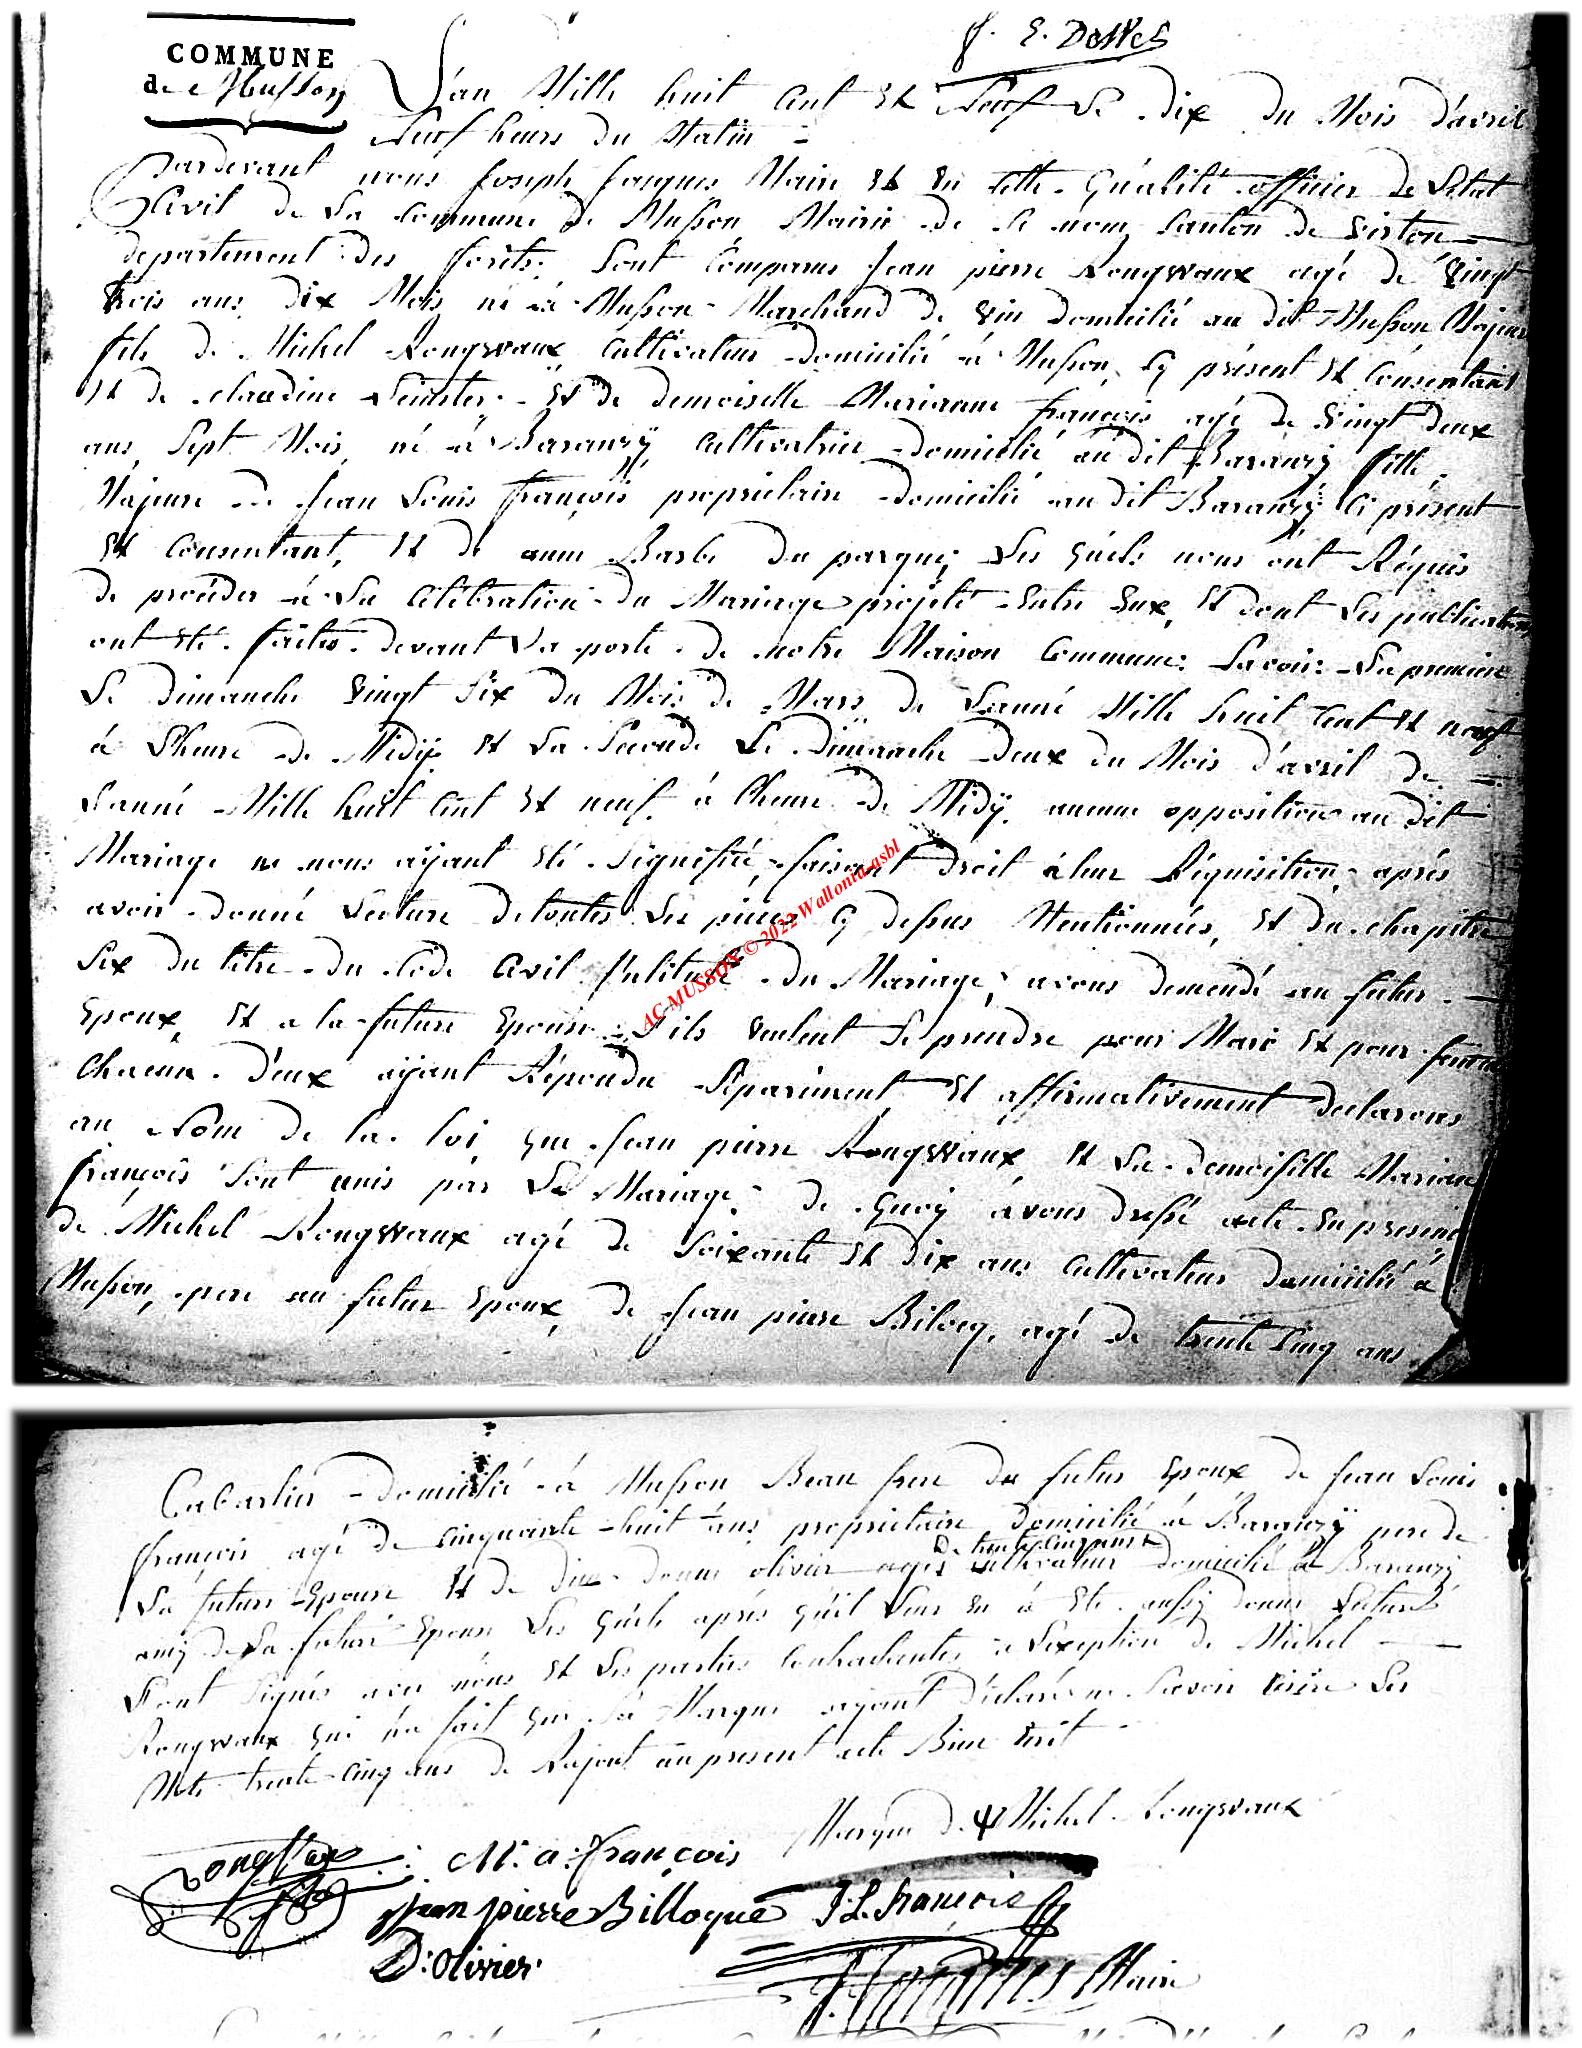 J. E. Dosses
COMMUNE
de Musson
L'an Mille huit Cent Et Neuf Le dix du Mois d'avril
Neuf heurs du Matin =
Pardevant nous Joseph Jacques Maire Et En Cette Quálité officier de L'etat
Civil de La Commune de Musson Mairie de Ce nom Canton de Virton
departement des forêts, Sont Comparus Jean pierre Rongvvaux agé de Vingt
trois ans dix Mois né à Musson Marchand de Vin Domicilié au dit Musson Majeur
fils de Michel Rongvvaux Cultivateur Domicilié à Musson Cy présent Et Consentant
Et de Claudine Et de demoiselle Marianne françois agé de Vingt Deux
ans, Sept Mois, né à Baranzÿ Cultivatrice Domicilié au dit Baranzÿ fille
Majeure de Jean Louis françois propriétaire Domicilié au dit Baranzÿ Ci présent
Et Consentant, Et de anne Barbe du parquy Les Quels nous ont Réquis
de procéder à La Célébration du Mariage projeté Entre Eux, Et dont Les publications
ont Eté faites devant La porte de notre Maison Commune Savoir La premiere
Le dimanche Vingt Six du Mois de Mars de L'anné Mille huit Cent Et neuf
à L'heure de Midÿ Et La Seconde Le Dimanche Deux du Mois d'avril de
L'anné Mille huit Cent Et neuf à l'heure de Midÿ. aucune opposition au dit
Mariage ne nous aÿant Eté Signifiée, faisant droit à leur Réquisition, aprés
avoir donné Lecture de toutes Les piéces Cy dessus Mentionnées, Et du chapitre
Six du titre du Code Civil Intitulé du Mariage, avons demendé au futur
Epoux, Et a la future Epouse S'ils Veulent Se prendre pour Mari Et pour femme
Chacun d'eux aÿant Répondu Séparément Et affirmativement declarons
au Nom de la loi que Jean pierre Rongvvaux Et La demoiselle Marianne
françois Sont unis par Le Mariage, de Quoÿ avons dressé acte En presence
de Michel Rongvvaux agé de Soixante Et dix ans Cultivateur Domicilié à
Musson, pere au futur Epoux, de Jean pierre Biloeq, agé de trente Cinq ans
AC-MUSSON © 2022 Wallonia-asbl
Cabartier domicilié à Musson Beau frere du futur Epoux de Jean Louis
françois agé de Cinquante huit ans propriétaire Domicilié à Baranzÿ pere de
de trente cinq ans
La future Epouse Et de Dieu donné olivier agés Cultivateur domicilié à Baranzy
amy de La future Epouse Les Quels aprés qu'il Leur En à Eté aussy donné Lecture
L'ont Signés avec nous Et Les parties Contractantes à L'exeption de Michel
Rongvvaux qui n'a fait que Sa Marque aÿant Déclaré ne Savoir Ecrire Les
Mots trente cinq ans de Rajout au present acte Bien Ecrit
Marque de Ψ Michel Rongvvaux
M. a. françois
jean pierre Billoque J. L. françois
D. Olivier
J. Jacques Maire